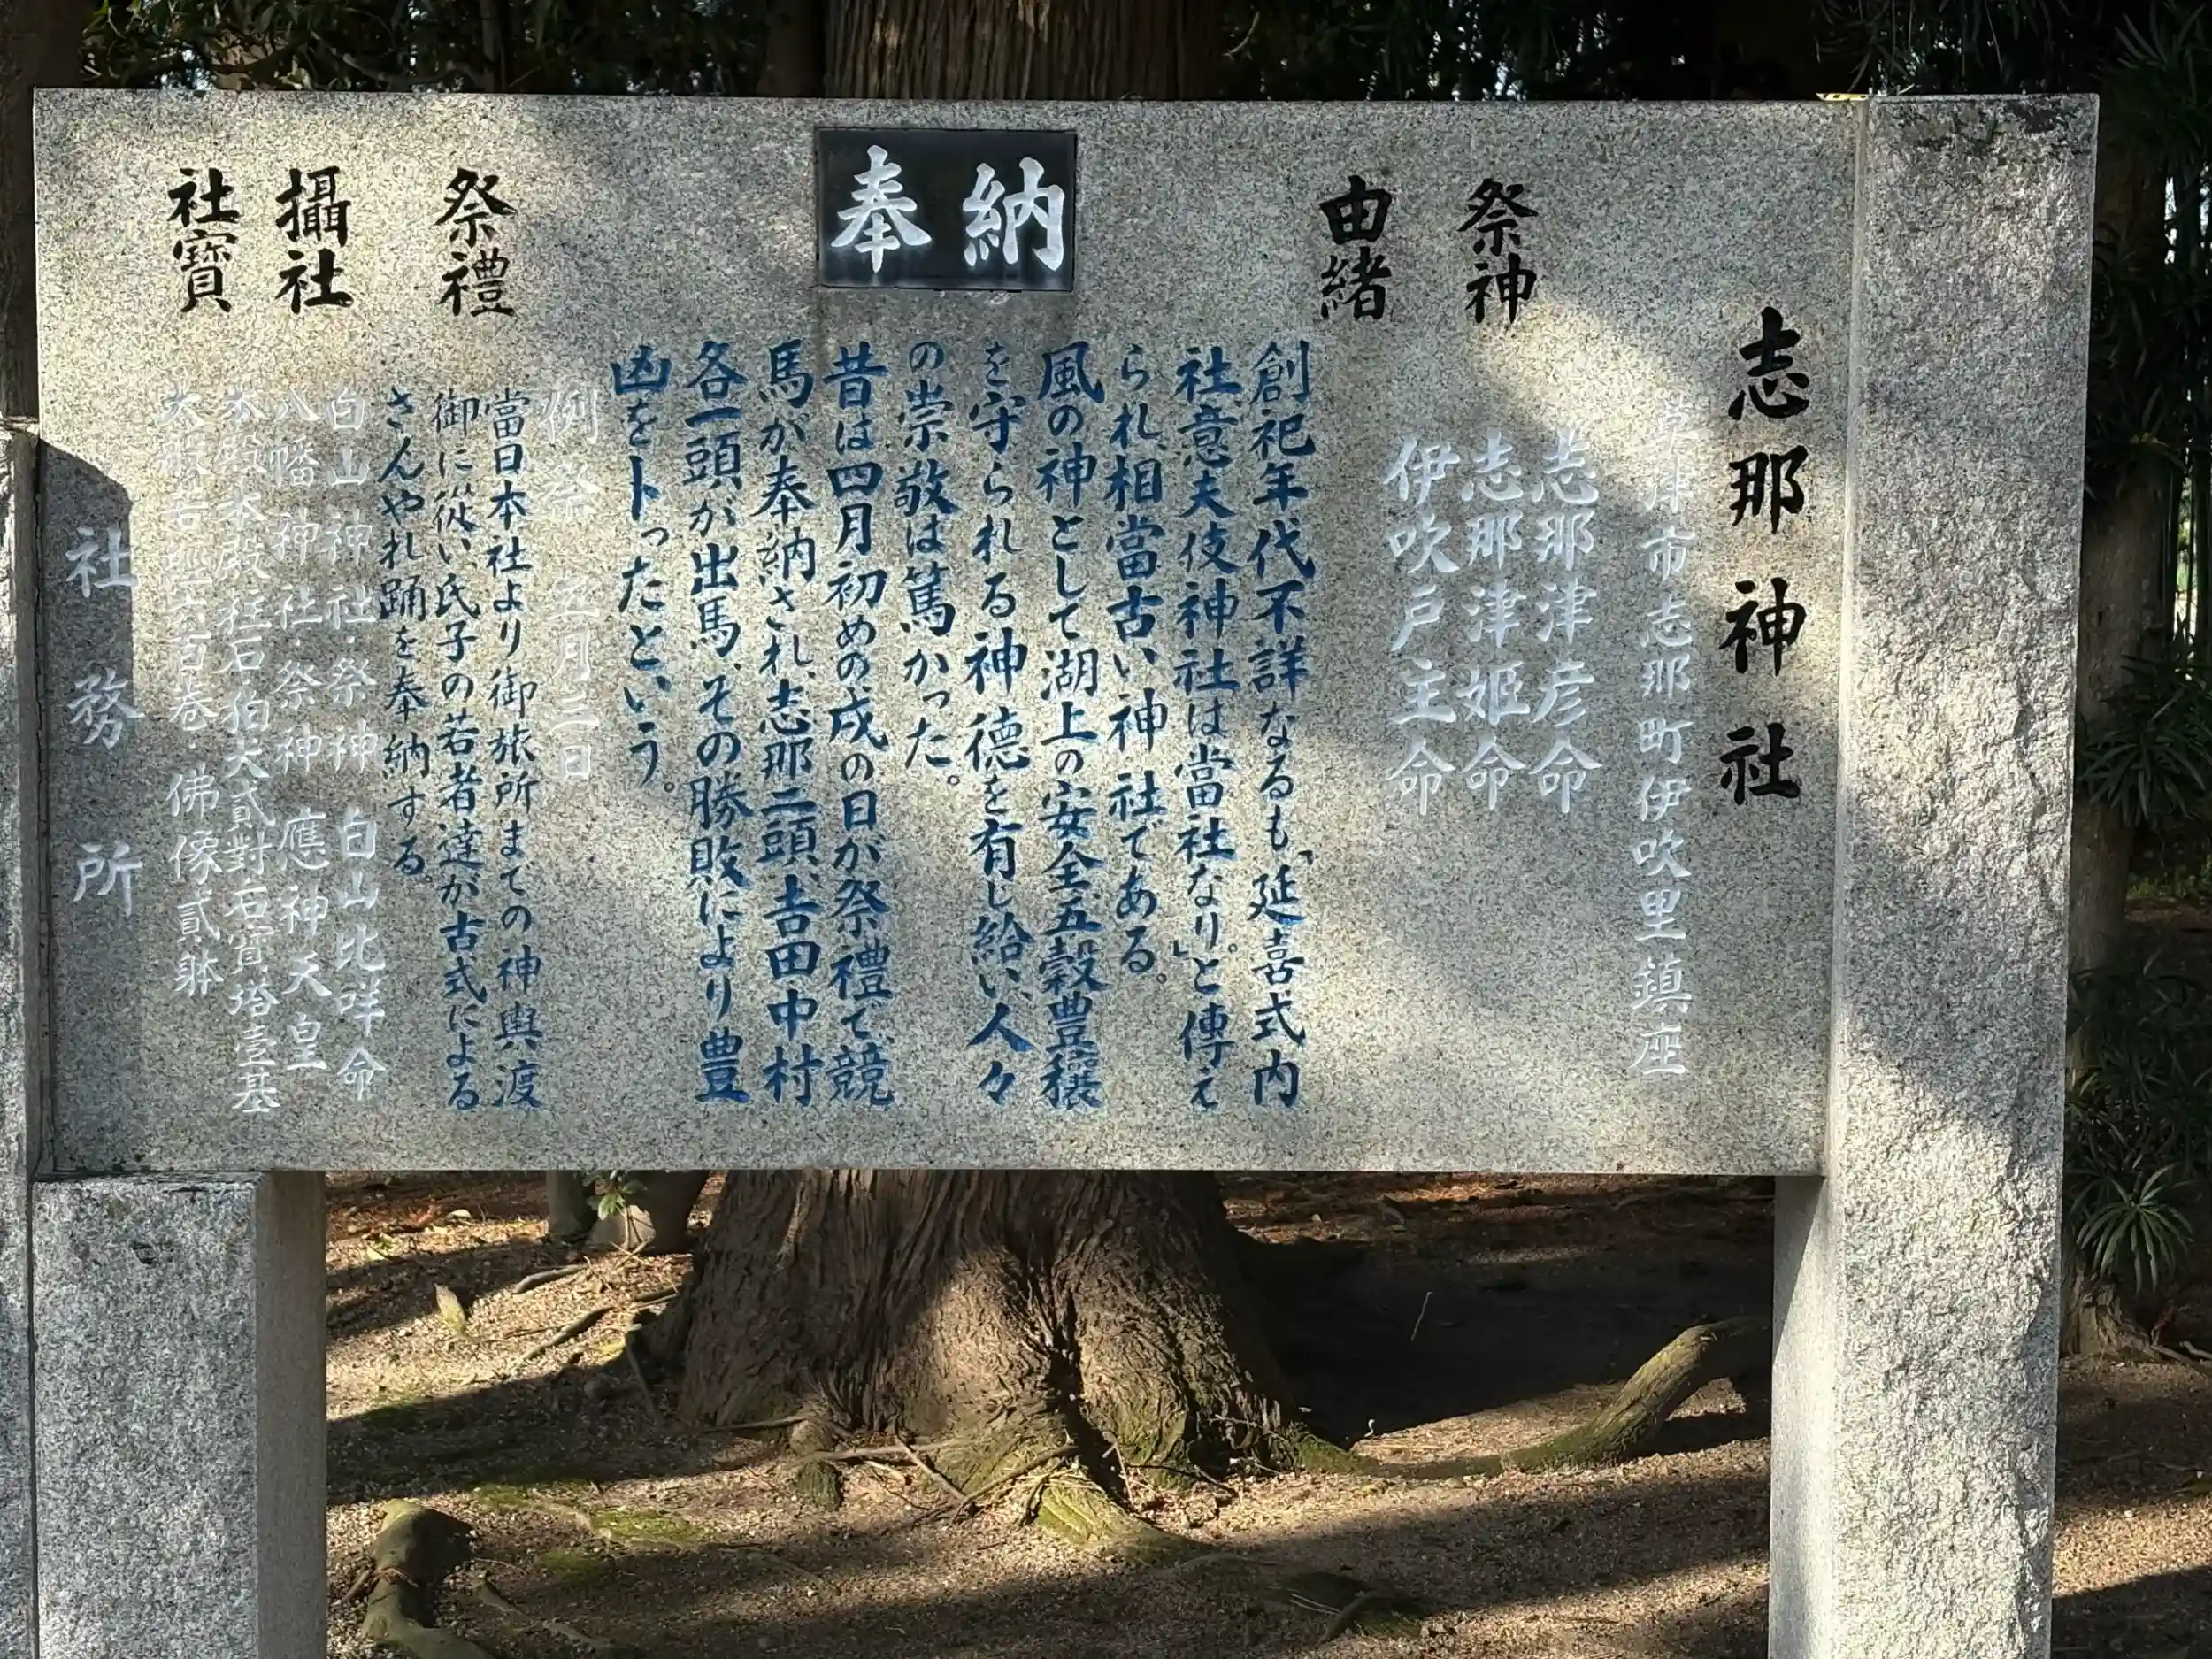 志那神社
草津市志那町伊吹里鎮座
祭神
志那津彦命
志那津姫命
伊吹戸主命
由緒
創祀年代不詳なるも、「延喜式内
社、意夫伎神社は當社なり。」と傳え
られ、相當古い神社である。
風の神として湖上の安全、五穀豊穣
を守られる神徳を有し給い、人々
の崇敬は篤かった。
昔は四月初めの戌の日が祭禮で、競
馬が奉納され、志那二頭、吉田中村
各一頭が出馬、その勝敗により豊
凶をトったという。
奉納
祭禮
例祭 五月三日
當日本社より御旅所までの神輿渡
御に從い、氏子の若者達が古式による
さんやれ踊を奉納する。
攝社
白山神社・祭神 白山比咩命
八幡神社・祭神 應神天皇
社寶
本殿・本殿柱石・狛犬貳對・石寳塔壹基
大般若經六百巻・佛像貳躰
社務所